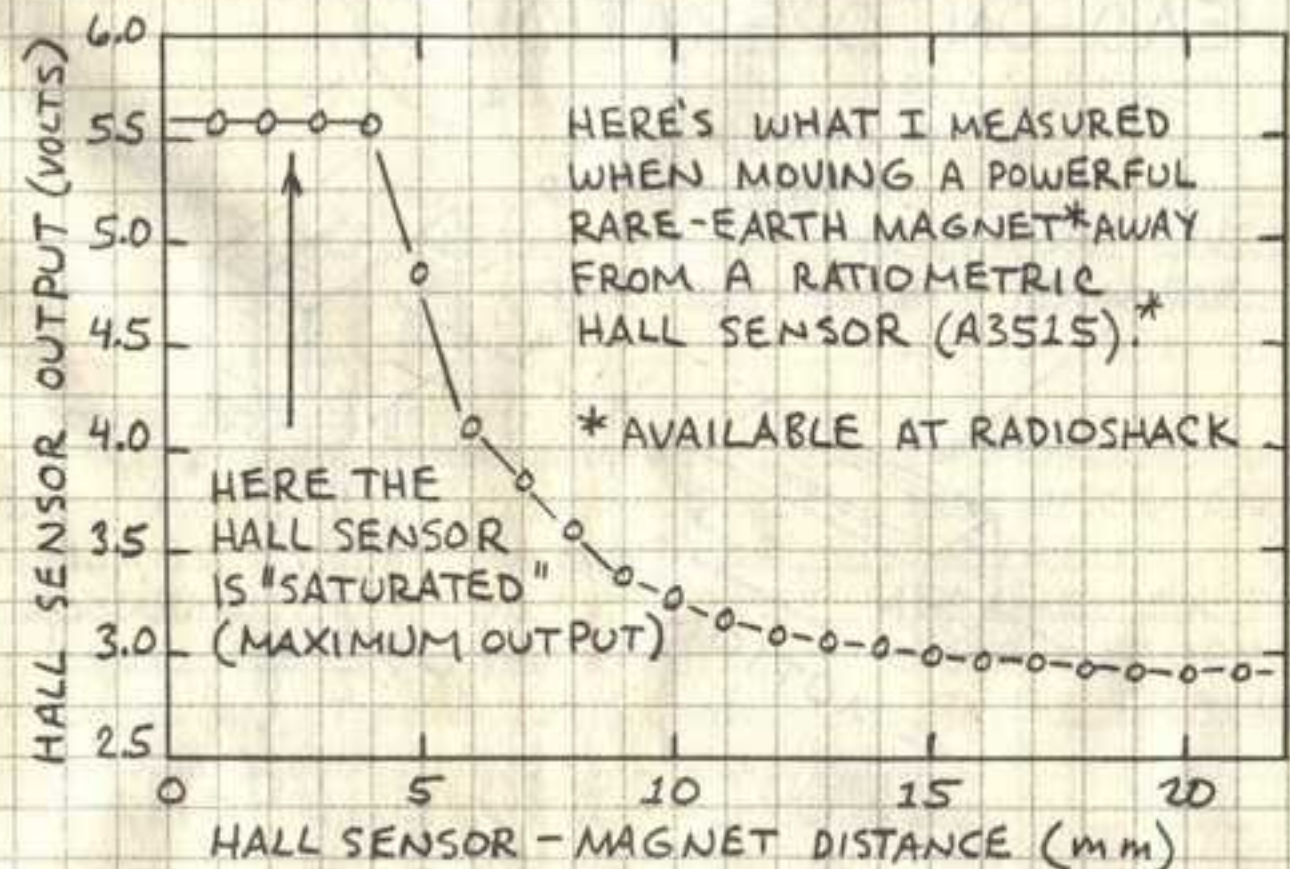 6.0
5.5
5.0
4.5
4.0
3.5
3.0
2.5
HALL SENSOR OUTPUT (VOLTS)
HERE'S WHAT I MEASURED
WHEN MOVING A POWERFUL
RARE-EARTH MAGNET* AWAY
FROM A RATIOMETRIC
HALL SENSOR (A3515).*
* AVAILABLE AT RADIOSHACK
HERE THE
HALL SENSOR
IS "SATURATED"
(MAXIMUM OUTPUT)
0 5 10 15 20
HALL SENSOR - MAGNET DISTANCE (mm)